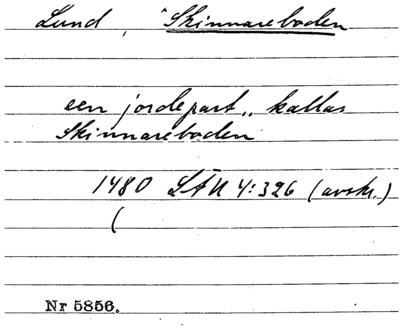 Lund, "Skinnareboden
een jordepart,, kallas
Skinnareboden
1480 LÄU 4:326 (avskr.)
(
Nr 5856.